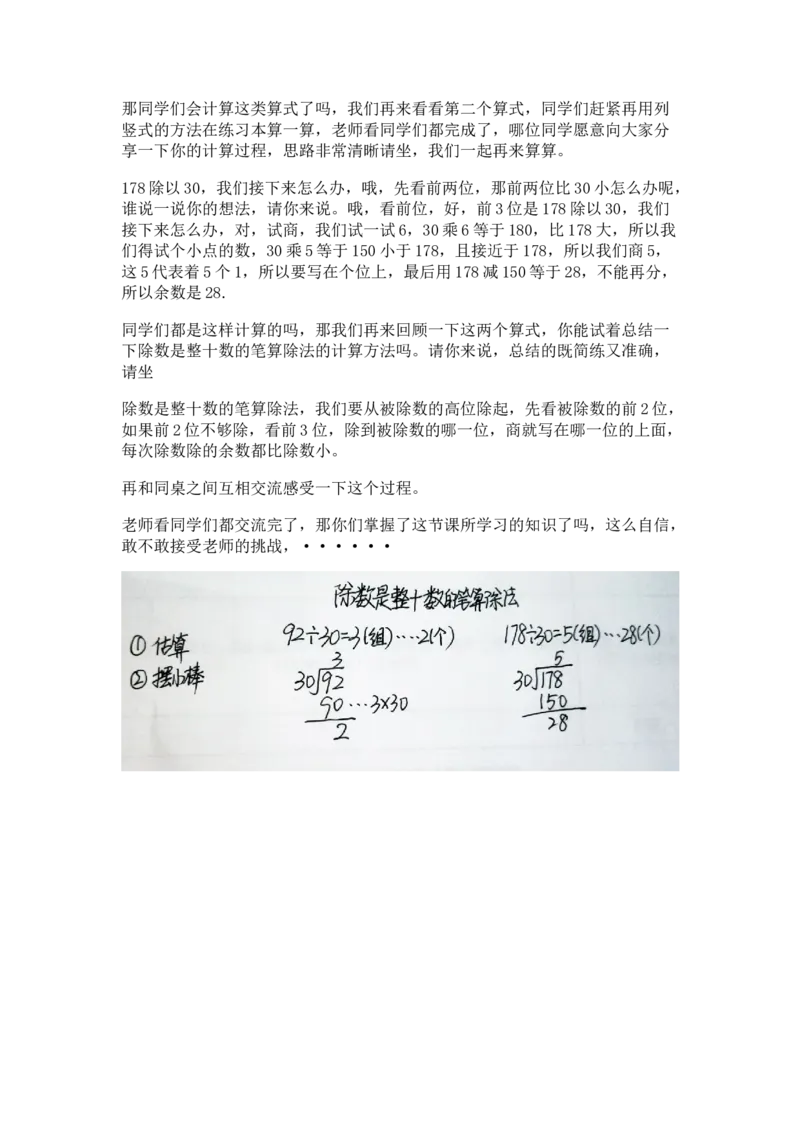 那同学们会计算这类算式了吗，我们再来看看第二个算式，同学们赶紧再用列
竖式的方法在练习本算一算，老师看同学们都完成了，哪位同学愿意向大家分
享一下你的计算过程，思路非常清晰请坐，我们一起再来算算。
178除以30，我们接下来怎么办，哦，先看前两位，那前两位比30小怎么办呢，
谁说一说你的想法，请你来说。哦，看前位，好，前3位是178除以30，我们
接下来怎么办，对，试商，我们试一试6，30乘6等于180，比178大，所以我
们得试个小点的数，30乘5等于150小于178，且接近于178，所以我们商5，
这5代表着5个1，所以要写在个位上，最后用178减150等于28，不能再分，
所以余数是28.
同学们都是这样计算的吗，那我们再来回顾一下这两个算式，你能试着总结一
下除数是整十数的笔算除法的计算方法吗。请你来说，总结的既简练又准确，
请坐
除数是整十数的笔算除法，我们要从被除数的高位除起，先看被除数的前2位，
如果前2位不够除，看前3位，除到被除数的哪一位，商就写在哪一位的上面，
每次除数除的余数都比除数小。
再和同桌之间互相交流感受一下这个过程。
老师看同学们都交流完了，那你们掌握了这节课所学习的知识了吗，这么自信，
敢不敢接受老师的挑战，······
除数是整十数的笔算除法
①估算
②摆小棒
92÷30=3(组)···2(个)
3
3092
90···3×30
2
178÷30=5(组)···28(个)
5
30178
150
28